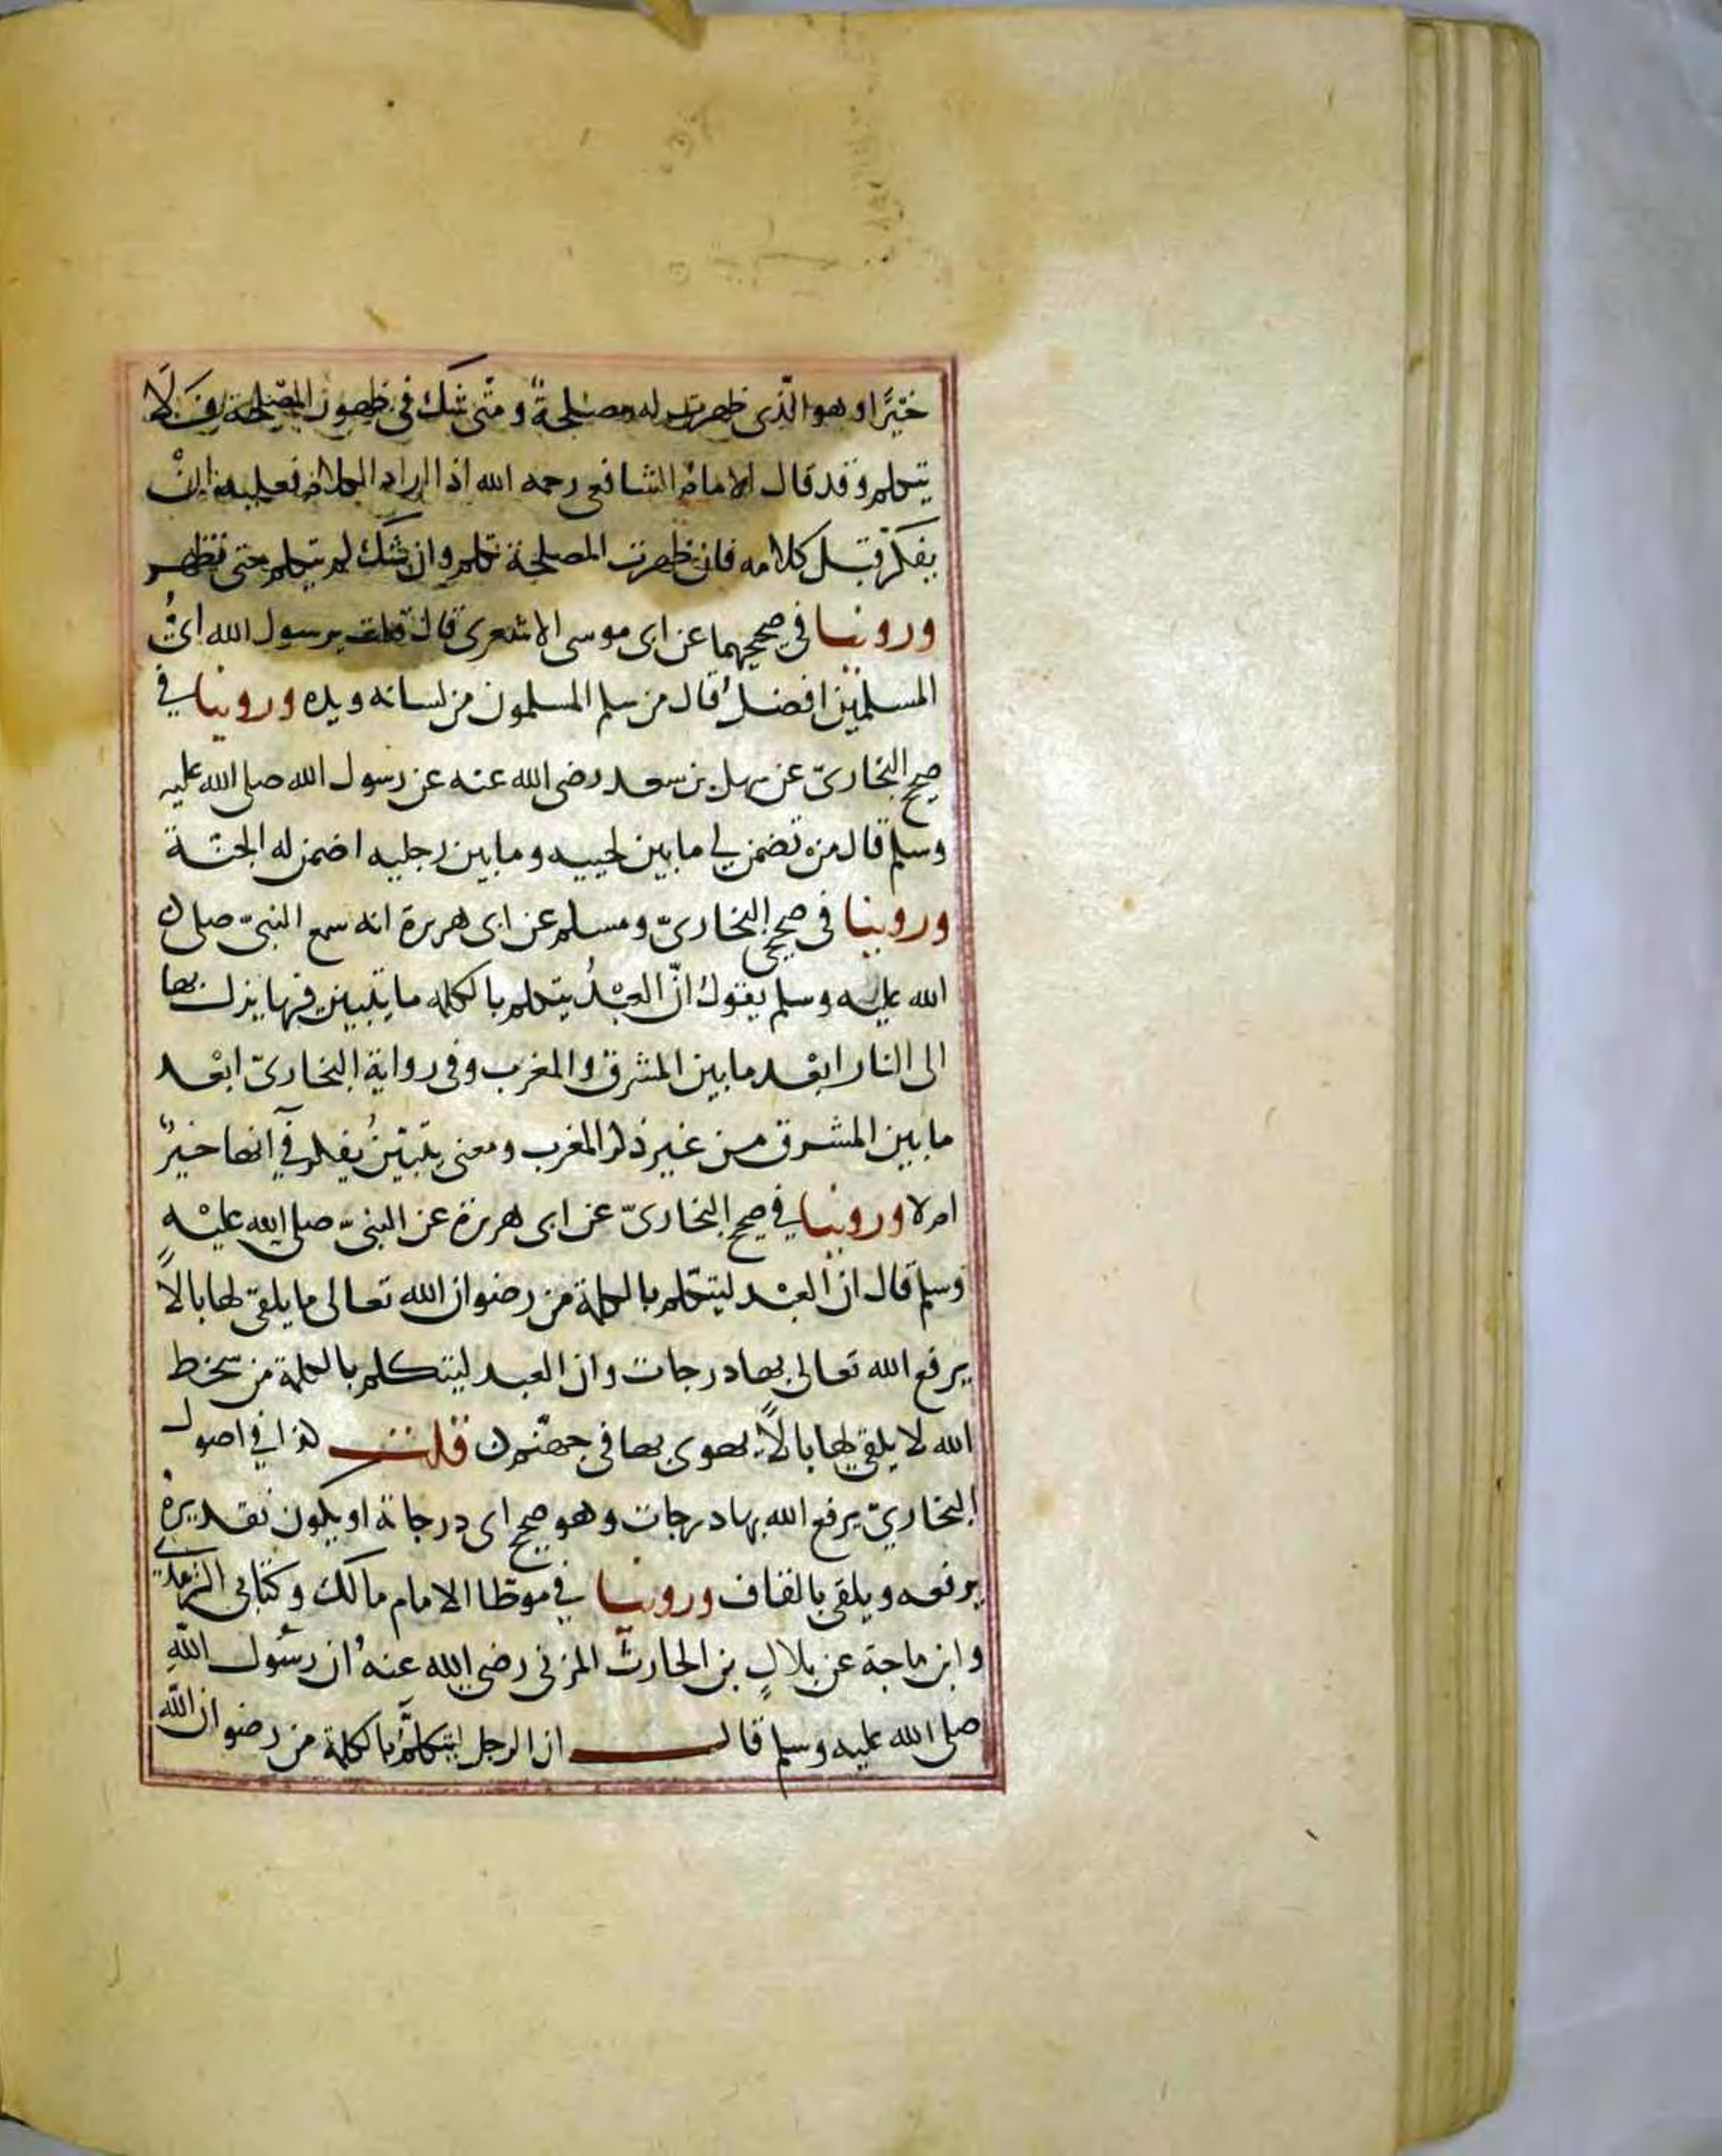 خيرًا وهو الّذى ظهرت له مصلحةً ومتى شك فى ظهور المصلحة فَلَا
يتكلم وقد قال الامامُ الشافعى رحمه الله اذا اراد الكلام فعليه انْ
يفكّر قبل كلامه فان ظهرت المصلحة تكلم وان شك لم يتكلم حتى تظهر
وروينا فى صحيحيهما عن ابى موسى الاشعرى قال قلت يرسول الله اىُّ
المسلمين افضلُ قال من سلم المسلمون من لسانه ويده وروينا في
صحيح البخارىّ عن سهل بن سعد رضى الله عنه عن رسول الله صلى الله عليه
وسلم قال من تضمن لي ما بين لحييه وما بين رجليه اضمن له الجنّة
وروينا فى صحيحى البخارىّ ومسلم عن ابى هريرة انه سمع النبىّ صلى
الله عليه وسلم يقول انّ العبْدُ يتكلم بالكلمه ما يتبين فيها يزل بها
الى النار ابعْد ما بين المشرق والمغرب وفى رواية البخارىّ ابعْد
ما بين المشرق من غير ذكر المغرب ومعنى يتبيّنُ يفكر فى آنها خيرٌ
ام لا وروينا في صحيح البخارىّ عن ابى هريرة عن النبىّ صلى الله عليْه
وسلم قال ان العبْد ليتكلم بالكلمة من رضوان الله تعالى ما يلقى لها بالاً
يرفع الله تعالى بها درجات وان العبد ليتكلم بالكلمة من سخط
الله لا يلقى لها بالاً يهوى بها فى جهنّم قلت كذا في اصول
البخاريّ يرفع الله بها درجات وهو صحيح اى درجاته او يكون تقديرهْ
يرفعه ويلقى بالقاف وروينا في موطا الامام مالك وكتابى الترمذي
وابن ماجة عن بلالٍ بن الحارث المزنى رضي الله عنهُ ان رسُول اللّهِ
صلى الله عليه وسلم قال ان الرجل ليتكلّم بالكلمة من رضوان اللّه